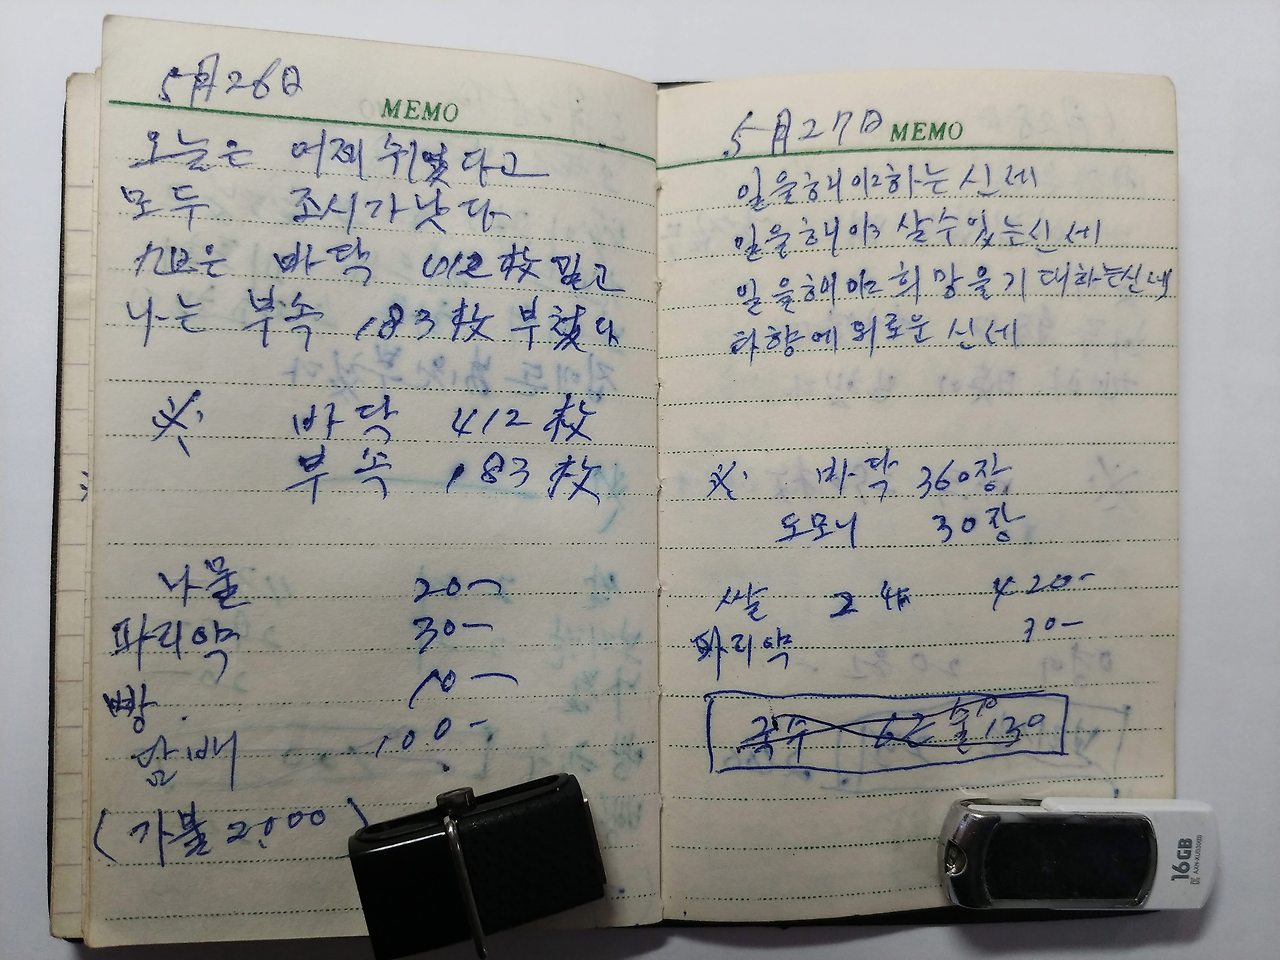 5月26日
MEMO
오늘은 어제 쉬었다고
모두 조시가 낫다
은 바닥 412枚 밀고
나는 부속 183枚 부쳤다
※ 바닥 412枚
부속 183枚
나물 20-
파리약 30-
빵 10-
담배 100-
(가불 2,000)
5月27日
MEMO
일을해야하는 신세
일을해야 살수있는신세
일을해야 희망을기대하는신세
타향에 외로운 신세
※ 바닥 360장
도모니 30장
쌀 2 420-
파리약 30-
국수 62 술 130
16GB